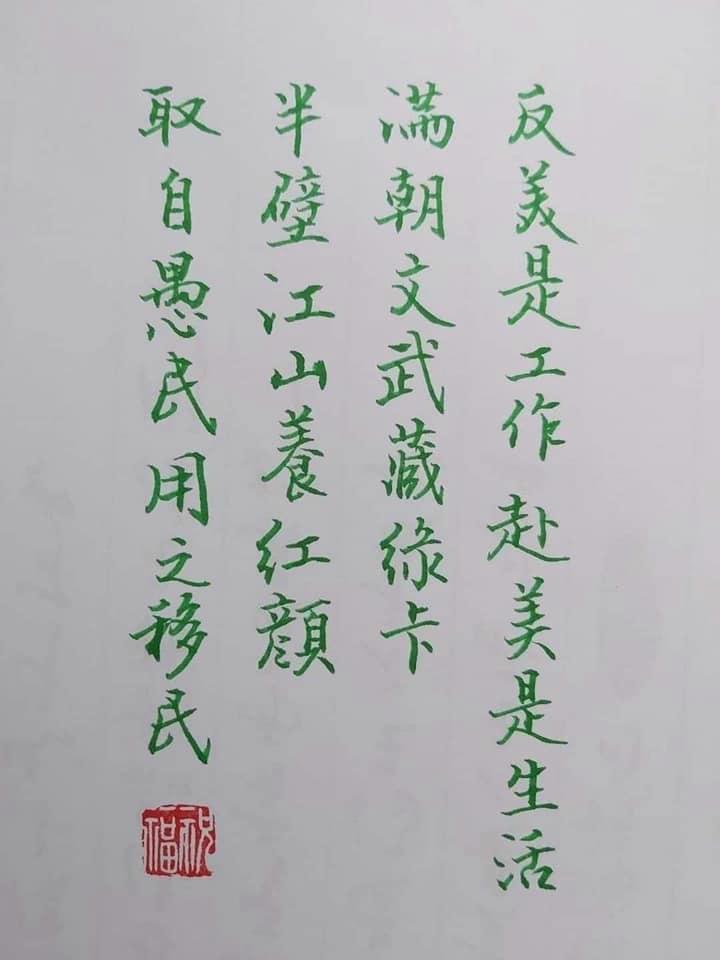 反美是工作 赴美是生活
满朝文武藏绿卡
半壁江山養红顔
取自愚民用之移民
祝福